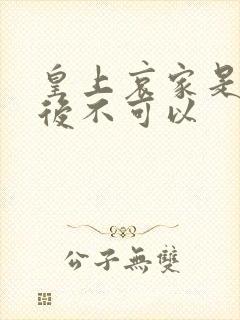 皇上哀家是
後不可以
公子無雙